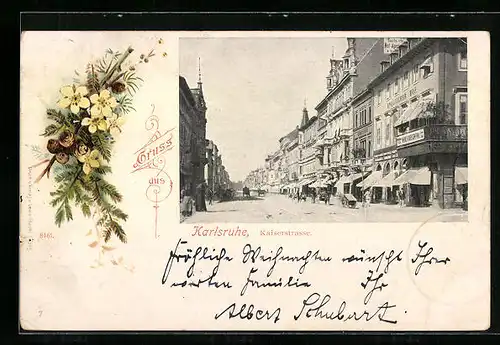 Gruss
aus
Karlsruhe, Kaiserstrasse.
8161.
Fröhliche Weihnachten wünscht Ihrer
werten Familie Ihr
Albert Schubart.